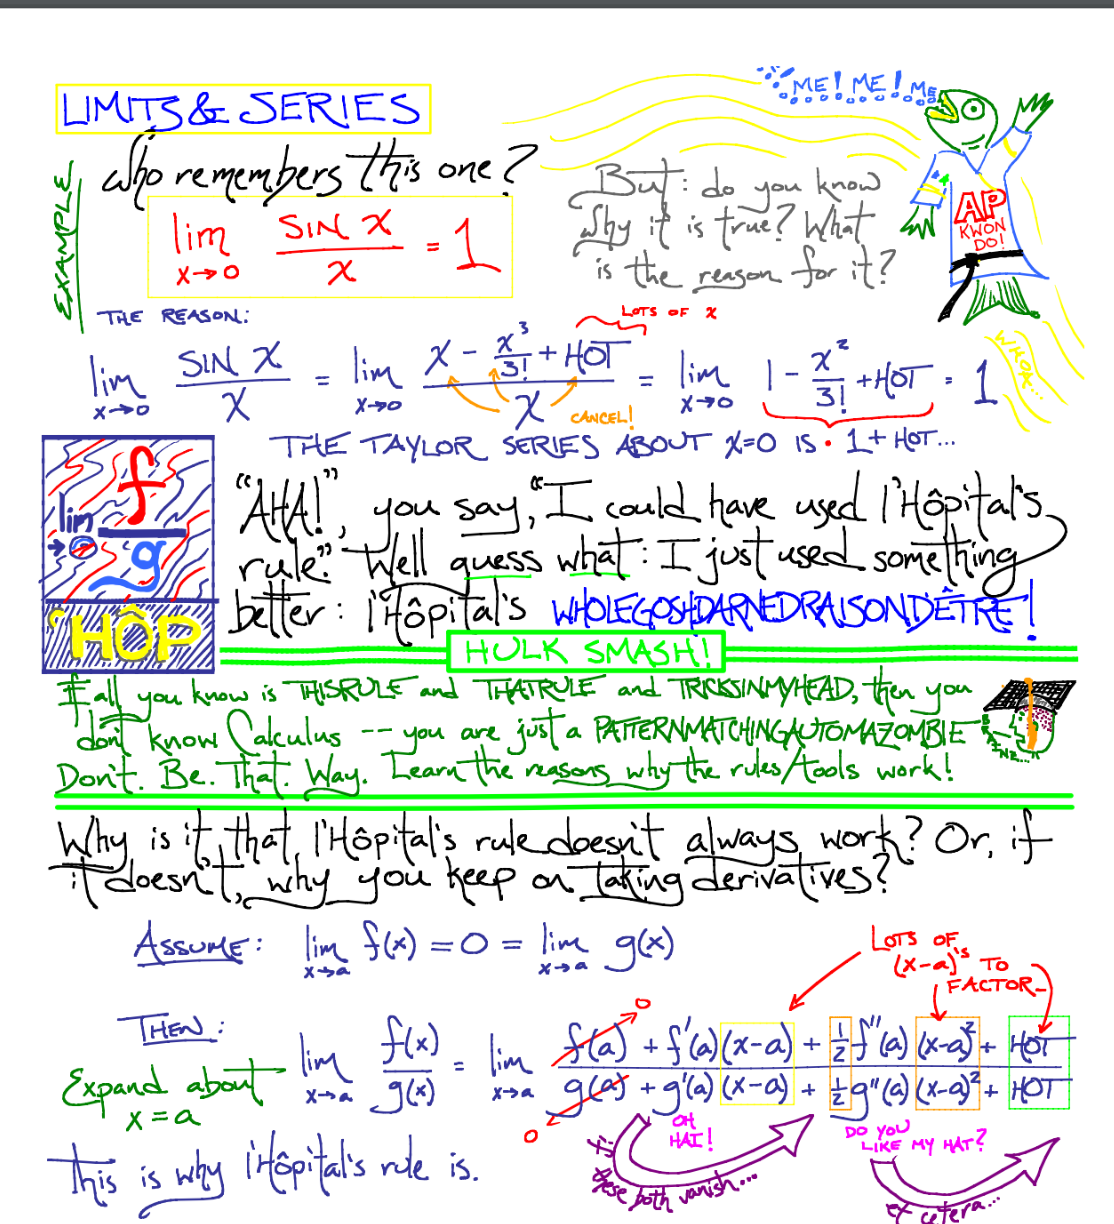 LIMITS & SERIES
ME! ME! ME
EXAMPLE
Who remembers this one?
lim x→0 SIN x / x = 1
But: do you know
why it is true? What
is the reason for it?
AP
KWON
DO!
THE REASON:
LOTS OF x
lim x→0 SIN x / x = lim x→0 (x - x³/3! + HOT) / x = lim x→0 1 - x²/3! + HOT = 1
CANCEL!
THE TAYLOR SERIES ABOUT x=0 IS • 1 + HOT...
lim →0 f / g
'HÔP
"AHA!", you say, "I could have used l'Hôpital's
rule." Well guess what: I just used something
better: l'Hôpital's WHOLEGOSHDARNEDRAISOND'ÊTRE!
HULK SMASH!
If all you know is THISRULE and THATRULE and TRICKSINMYHEAD, then you
don't know Calculus -- you are just a PATTERNMATCHINGAUTOMAZOMBIE
Don't. Be. That. Way. Learn the reasons why the rules/tools work!
Why is it, that l'Hôpital's rule doesn't always work? Or, if
it doesn't, why you keep on taking derivatives?
ASSUME: lim x→a f(x) = 0 = lim x→a g(x)
LOTS OF
(x-a)'s TO
FACTOR_
THEN:
lim x→a f(x)/g(x) = lim x→a (f(a) + f'(a)(x-a) + ½f''(a)(x-a)² + HOT) / (g(a) + g'(a)(x-a) + ½g''(a)(x-a)² + HOT)
0
0
Expand about
x = a
OH
HAI!
DO YOU
LIKE MY HAT?
if these both vanish...
et cetera...
This is why l'Hôpital's rule is.